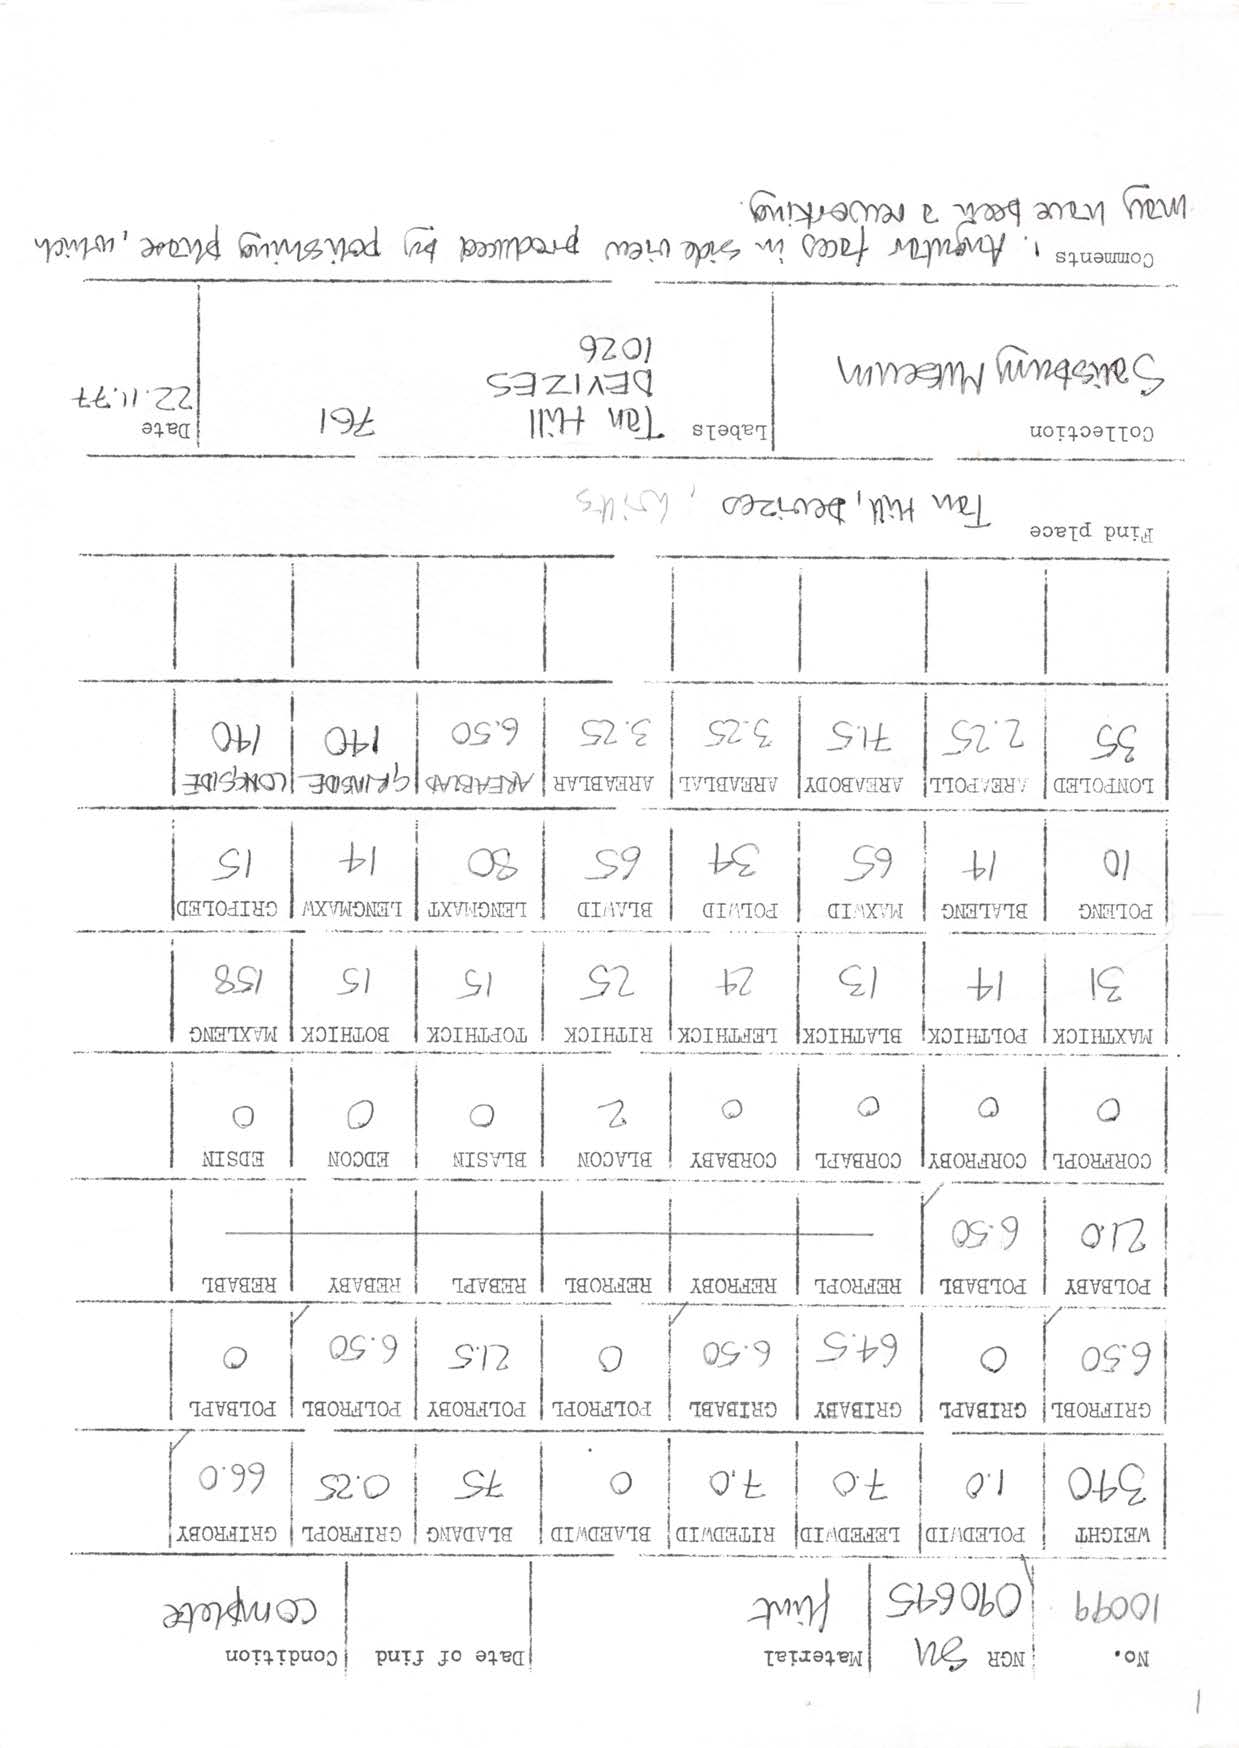 1
No. NGR SU Material Date of find Condition
10099 090645 flint complete
WEIGHT POLEDWID LEFEDWID RITEDWID BLAEDWID BLADANG GRIFROPL GRIFROBY
340 1.0 7.0 7.0 0 75 0.25 66.0
GRIFROBL GRIBAPL GRIBABY GRIBABL POLFROPL POLFROBY POLFROBL POLBAPL
6.50 0 64.5 6.50 0 21.5 6.50 0
POLBABY POLBABL REFROPL REFROBY REFROBL REBAPL REBABY REBABL
21.0 6.50
CORFROPL CORFROBY CORBAPL CORBABY BLACON BLASIN EDCON EDSIN
0 0 0 0 2 0 0 0
MAXTHICK POLTHICK BLATHICK LEFTHICK RITHICK TOPTHICK BOTHICK MAXLENG
31 14 13 24 25 15 15 158
POLENG BLALENG MAXWID POLWID BLAWID LENGMAXT LENGMAXW GRIPOLED
10 14 65 34 65 80 14 15
LONPOLED AREAPOLL AREABODY AREABLAL AREABLAR AREABLAD GRINSIDE LONGSIDE
35 2.25 71.5 3.25 3.25 6.50 140 140
Find place Tan Hill, Devizes, Wilts
Collection Labels Tan Hill 761 Date
Salisbury Museum DEVIZES 22.11.77
1026
Comments 1. Angular faces in side view produced by polishing phase, which
may have been a reworking.